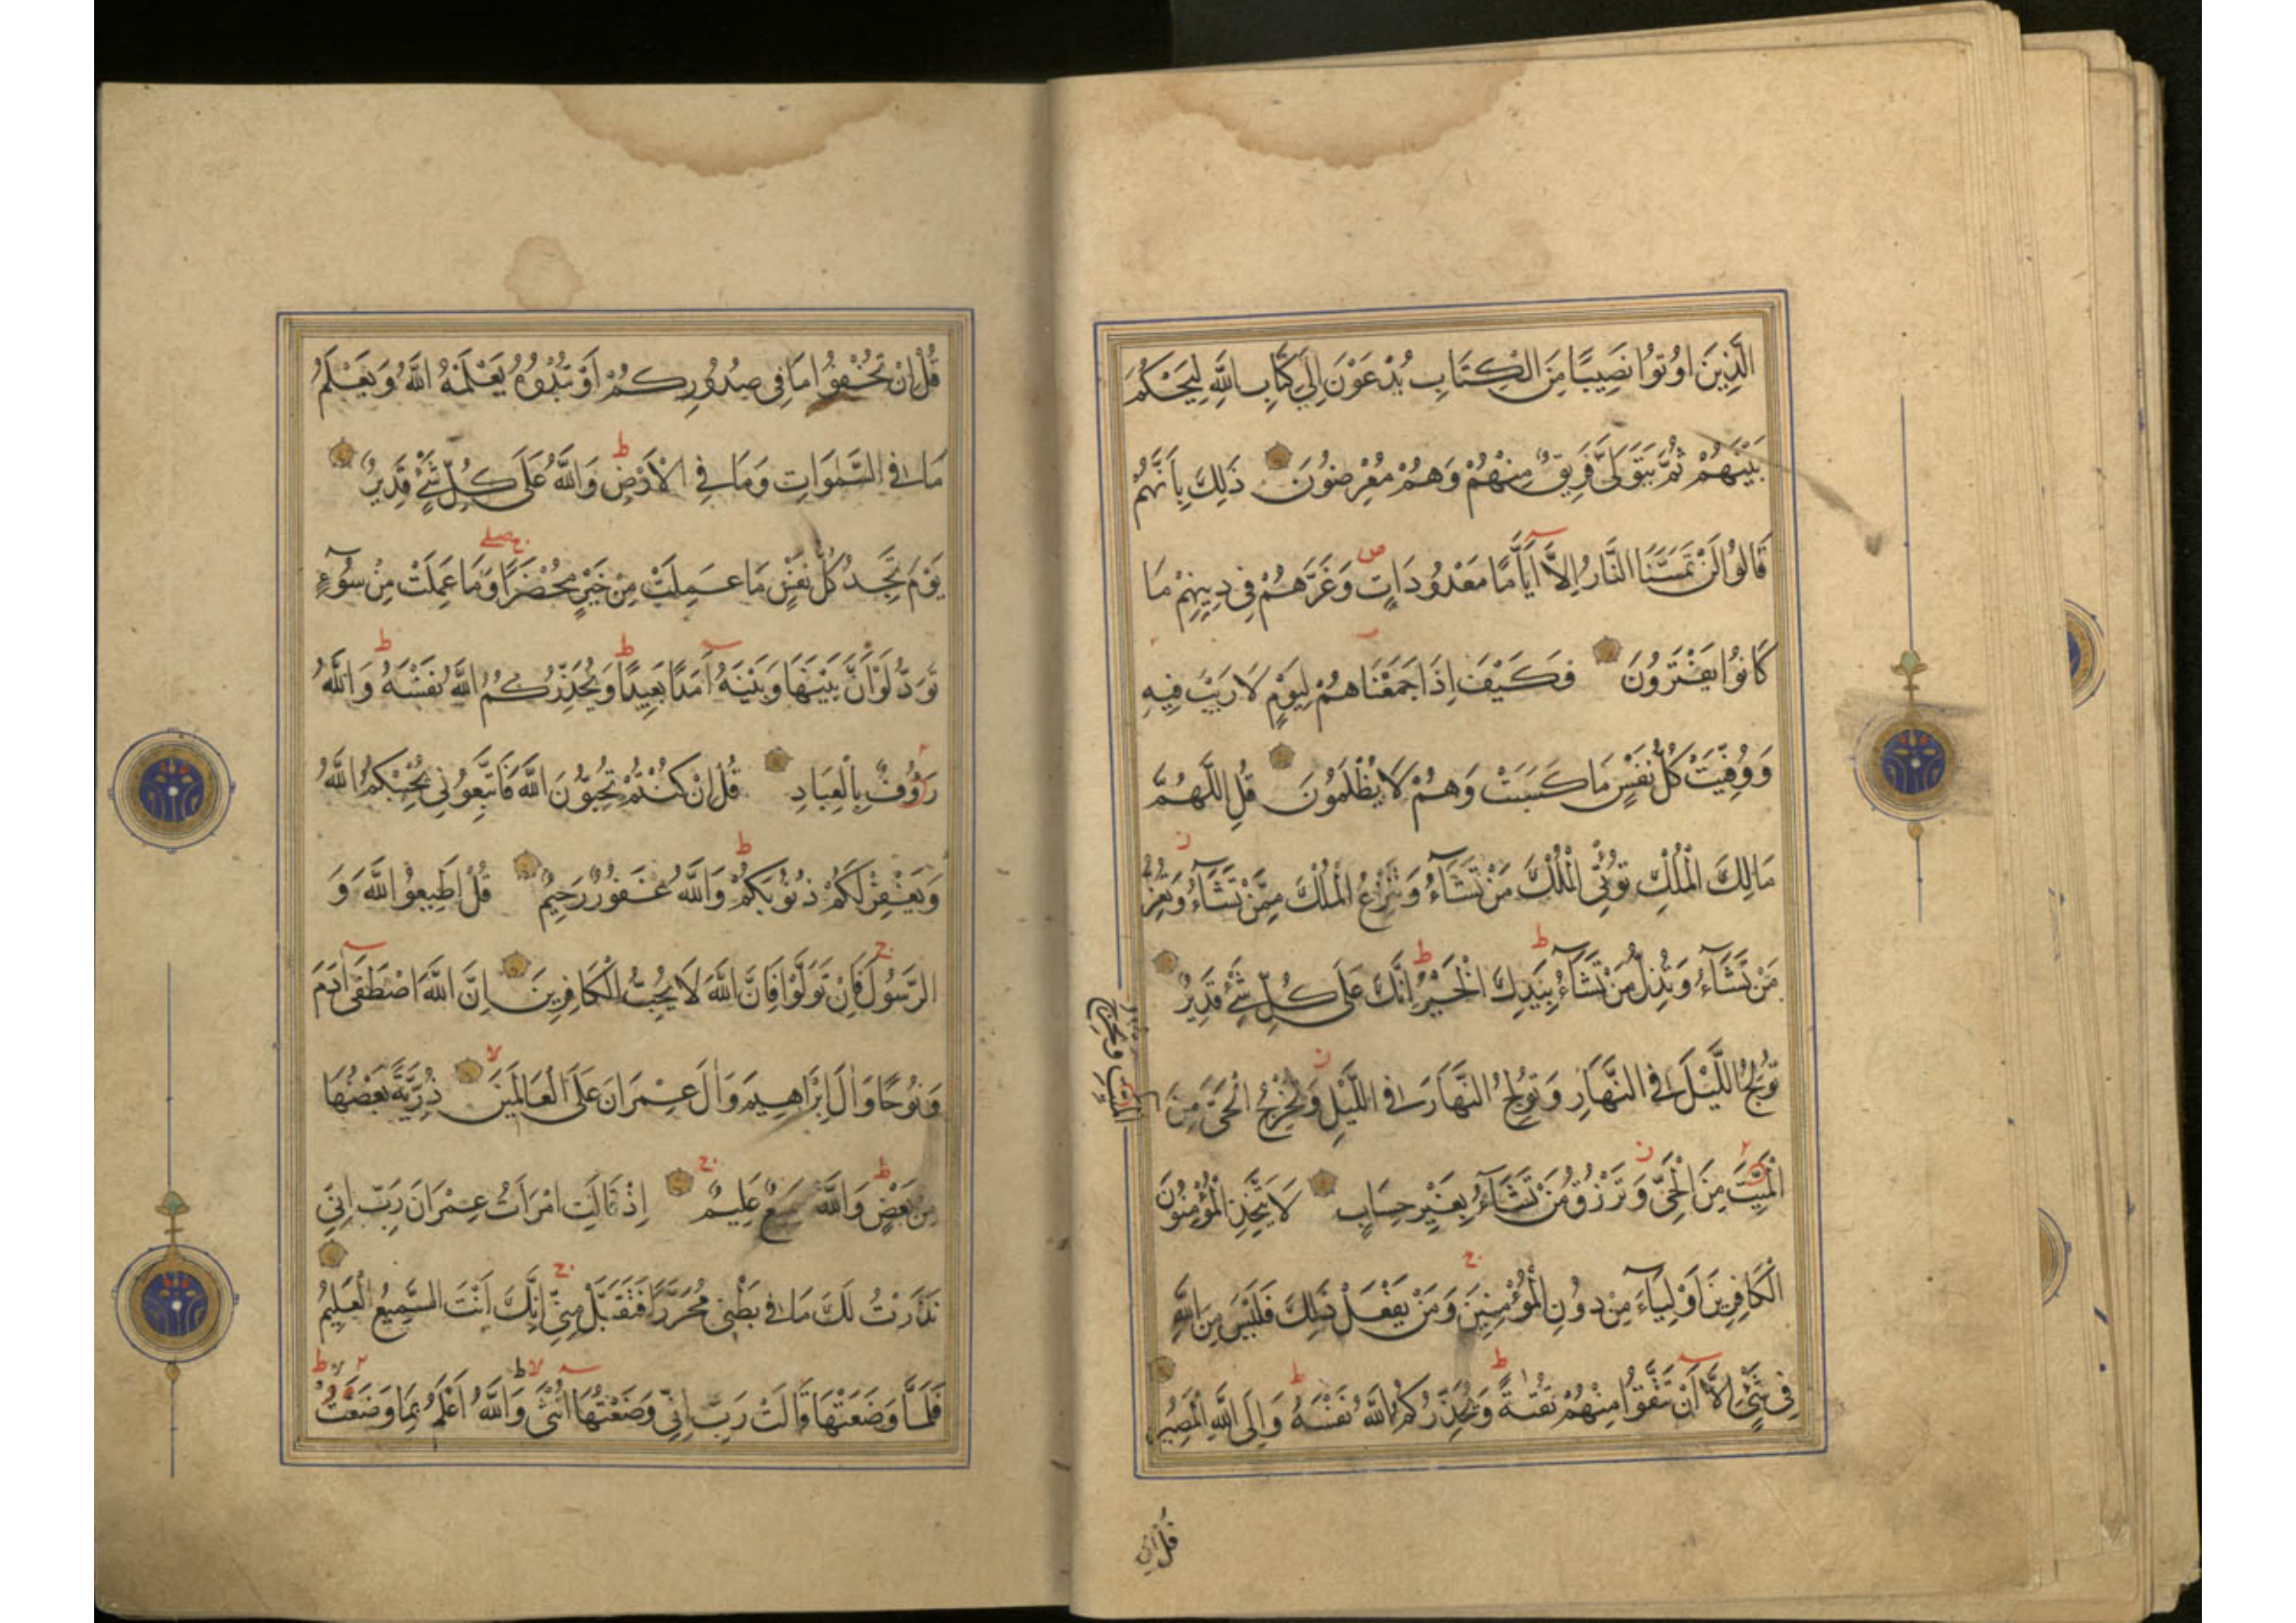 الَّذِينَ اُوتُوا نَصِيبًا مِنَ الْكِتَابِ يُدْعَوْنَ اِلٰى كِتَابِ اللّٰهِ لِيَحْكُمَ
بَيْنَهُمْ ثُمَّ يَتَوَلّٰى فَرِيقٌ مِنْهُمْ وَهُمْ مُعْرِضُونَ ذٰلِكَ بِاَنَّهُمْ
قَالُوا لَنْ تَمَسَّنَا النَّارُ اِلَّا اَيَّامًا مَعْدُودَاتٍ وَغَرَّهُمْ فِى دِينِهِمْ مَا
كَانُوا يَفْتَرُونَ فَكَيْفَ اِذَا جَمَعْنَاهُمْ لِيَوْمٍ لَا رَيْبَ فِيهِ
وَوُفِّيَتْ كُلُّ نَفْسٍ مَا كَسَبَتْ وَهُمْ لَا يُظْلَمُونَ قُلِ اللّٰهُمَّ
مَالِكَ الْمُلْكِ تُؤْتِى الْمُلْكَ مَنْ تَشَآءُ وَتَنْزِعُ الْمُلْكَ مِمَّنْ تَشَآءُ وَتُعِزُّ
مَنْ تَشَآءُ وَتُذِلُّ مَنْ تَشَآءُ بِيَدِكَ الْخَيْرُ اِنَّكَ عَلٰى كُلِّ شَىْءٍ قَدِيرٌ
تُولِجُ اللَّيْلَ فِى النَّهَارِ وَتُولِجُ النَّهَارَ فِى اللَّيْلِ وَتُخْرِجُ الْحَىَّ مِنَ
الْمَيِّتِ وَتُخْرِجُ
الْمَيِّتَ مِنَ الْحَىِّ وَتَرْزُقُ مَنْ تَشَآءُ بِغَيْرِ حِسَابٍ لَا يَتَّخِذِ الْمُؤْمِنُونَ
الْكَافِرِينَ اَوْلِيَآءَ مِنْ دُونِ الْمُؤْمِنِينَ وَمَنْ يَفْعَلْ ذٰلِكَ فَلَيْسَ مِنَ اللّٰهِ
فِى شَىْءٍ اِلَّا اَنْ تَتَّقُوا مِنْهُمْ تُقٰىةً وَيُحَذِّرُكُمُ اللّٰهُ نَفْسَهُ وَاِلَى اللّٰهِ الْمَصِيرُ
قُلْ اِنْ
قُلْ اِنْ تُخْفُوا مَا فِى صُدُورِكُمْ اَوْ تُبْدُوهُ يَعْلَمْهُ اللّٰهُ وَيَعْلَمُ
مَا فِى السَّمٰوَاتِ وَمَا فِى الْاَرْضِ وَاللّٰهُ عَلٰى كُلِّ شَىْءٍ قَدِيرٌ
يَوْمَ تَجِدُ كُلُّ نَفْسٍ مَا عَمِلَتْ مِنْ خَيْرٍ مُحْضَرًا وَمَا عَمِلَتْ مِنْ سُوٓءٍ
تَوَدُّ لَوْ اَنَّ بَيْنَهَا وَبَيْنَهُ اَمَدًا بَعِيدًا وَيُحَذِّرُكُمُ اللّٰهُ نَفْسَهُ وَاللّٰهُ
رَؤُفٌ بِالْعِبَادِ قُلْ اِنْ كُنْتُمْ تُحِبُّونَ اللّٰهَ فَاتَّبِعُونِى يُحْبِبْكُمُ اللّٰهُ
وَيَغْفِرْ لَكُمْ ذُنُوبَكُمْ وَاللّٰهُ غَفُورٌ رَحِيمٌ قُلْ اَطِيعُوا اللّٰهَ وَ
الرَّسُولَ فَاِنْ تَوَلَّوْا فَاِنَّ اللّٰهَ لَا يُحِبُّ الْكَافِرِينَ اِنَّ اللّٰهَ اصْطَفٰى اٰدَمَ
وَنُوحًا وَاٰلَ اِبْرَاهِيمَ وَاٰلَ عِمْرَانَ عَلَى الْعَالَمِينَ ذُرِّيَّةً بَعْضُهَا
مِنْ بَعْضٍ وَاللّٰهُ سَمِيعٌ عَلِيمٌ اِذْ قَالَتِ امْرَاَتُ عِمْرَانَ رَبِّ اِنِّى
نَذَرْتُ لَكَ مَا فِى بَطْنِى مُحَرَّرًا فَتَقَبَّلْ مِنِّى اِنَّكَ اَنْتَ السَّمِيعُ الْعَلِيمُ
فَلَمَّا وَضَعَتْهَا قَالَتْ رَبِّ اِنِّى وَضَعْتُهَا اُنْثٰى وَاللّٰهُ اَعْلَمُ بِمَا وَضَعَتْ